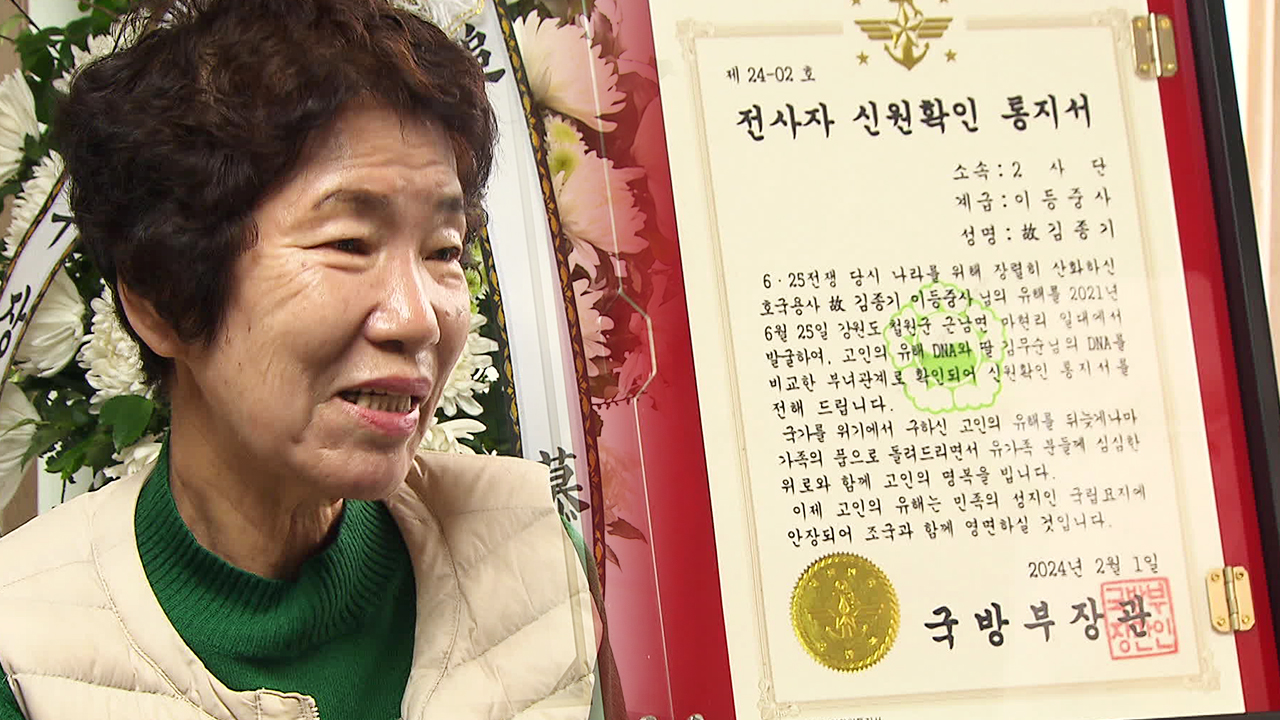 제 24-02 호
전사자 신원확인 통지서
소속:2 사 단
계급:이 등 중 사
성명:故 김 종 기
6·25전쟁 당시 나라를 위해 장렬히 산화하신
호국용사 故 김종기 이등중사님의 유해를 2021년
6월 25일 강원도 철원군 근남면 마현리 일대에서
발굴하여, 고인의 유해 DNA와 딸 김무순님의 DNA를
비교한 부녀관계로 확인되어 신원확인 통지서를
전해 드립니다.
국가를 위기에서 구하신 고인의 유해를 뒤늦게나마
가족의 품으로 돌려드리면서 유가족 분들께 심심한
위로와 함께 고인의 명복을 빕니다.
이제 고인의 유해는 민족의 성지인 국립묘지에
안장되어 조국과 함께 영면하실 것입니다.
2024년 2월 1일
국 방 부 장 관
국방부
장관인
慕